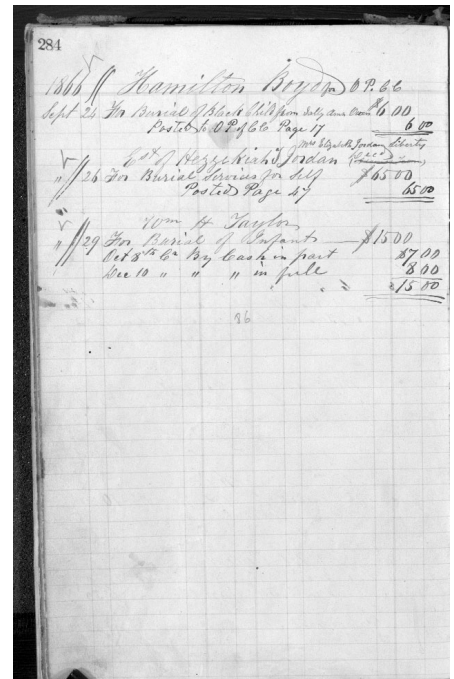 284
1866 // Hamilton Boyd for O P. C C
Sept 24 For Burial of Black Child from Ann $6 00
Posted to O P of C C Page 17 6 00
Mrs Elizabeth Jordan Liberty
Est of Hezzekiah Jordan
" // 26 For Burial Services for Self $65 00
Posted Page 47 65 00
Wm H Taylor
" // 29 For Burial of Infant $15 00
Oct 8th Cr By Cash in part $7 00
Dec 10 " " " in full 8 00
" " $15 00
36